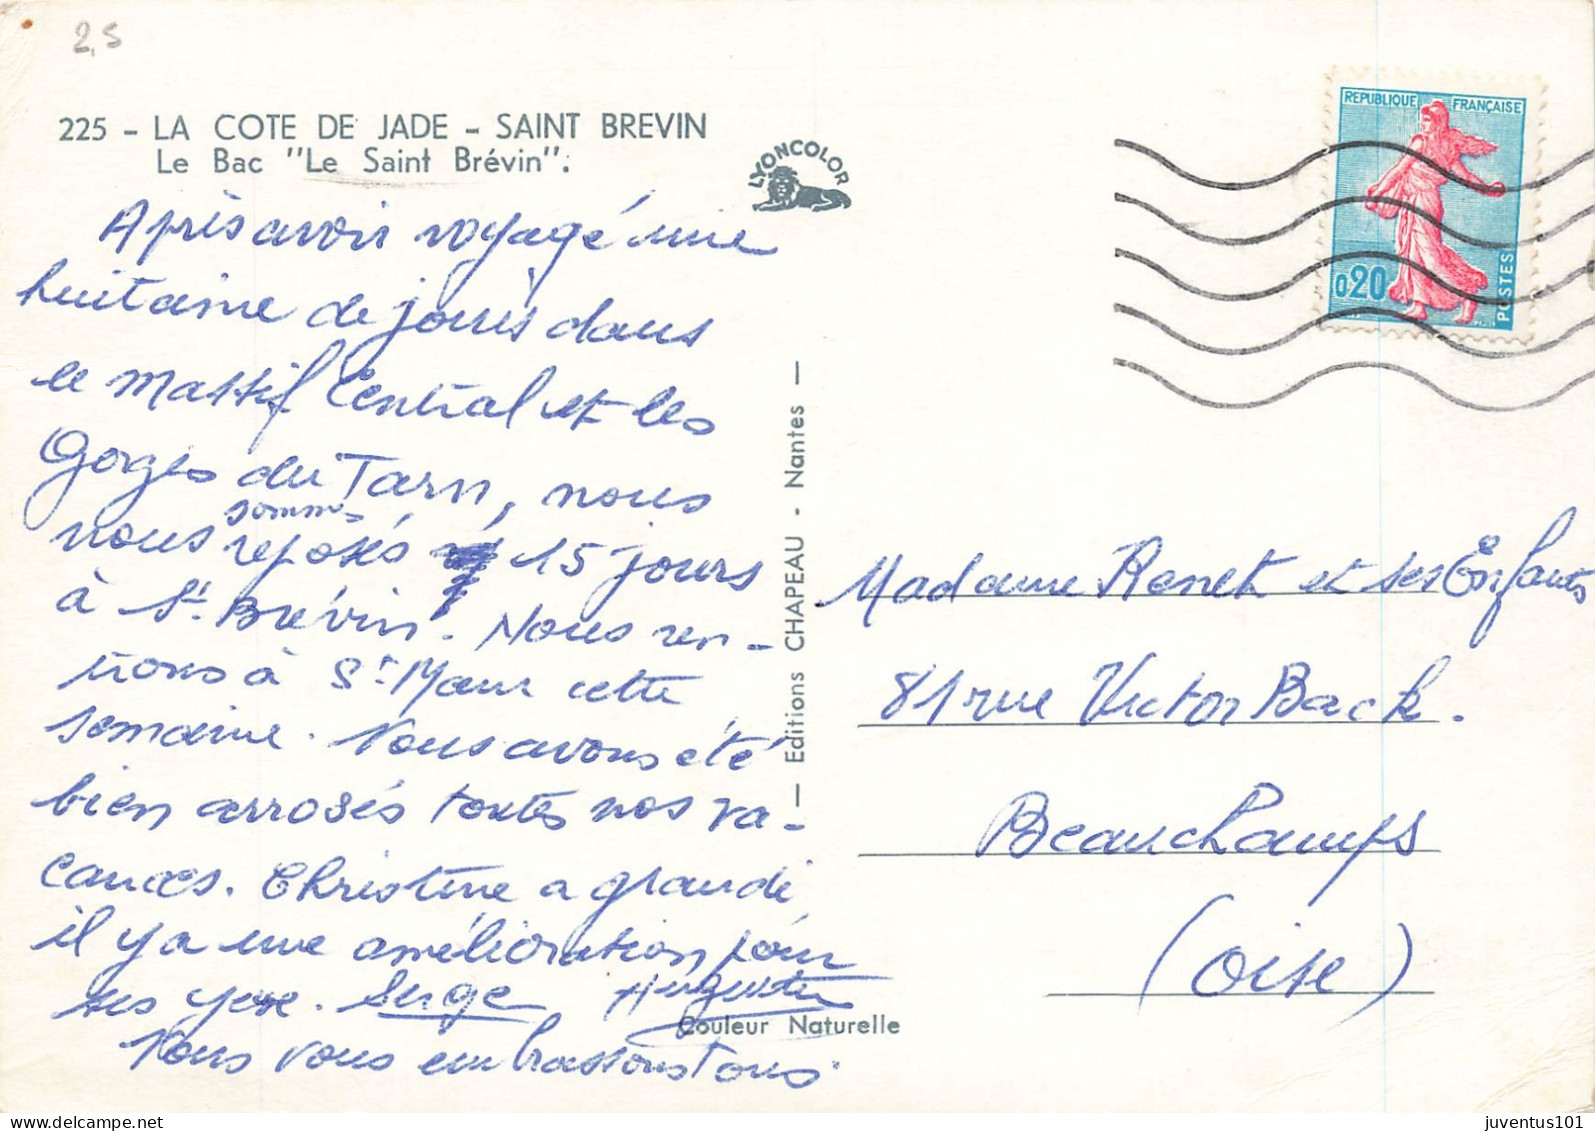 2,5
225 - LA COTE DE JADE - SAINT BREVIN
Le Bac "Le Saint Brévin".
LYONCOLOR
REPUBLIQUE FRANÇAISE
0,20
POSTES
Après avoir voyagé une
huitaine de jours dans
le Massif Central et les
Gorges du Tarn, nous
nous sommes reposés 15 jours
à St Brévin. Nous ren-
trons à St Maur cette
semaine. Nous avons été
bien arrosés toutes nos va-
cances. Christine a grandi
il y a une amélioration pour
ses yeux. Serge Augustin
Nous vous embrassons tous.
Editions CHAPEAU - Nantes
Couleur Naturelle
Madame Renet et ses Enfants
81 rue Victor Back.
Beauchamps
(Oise)
juventus101